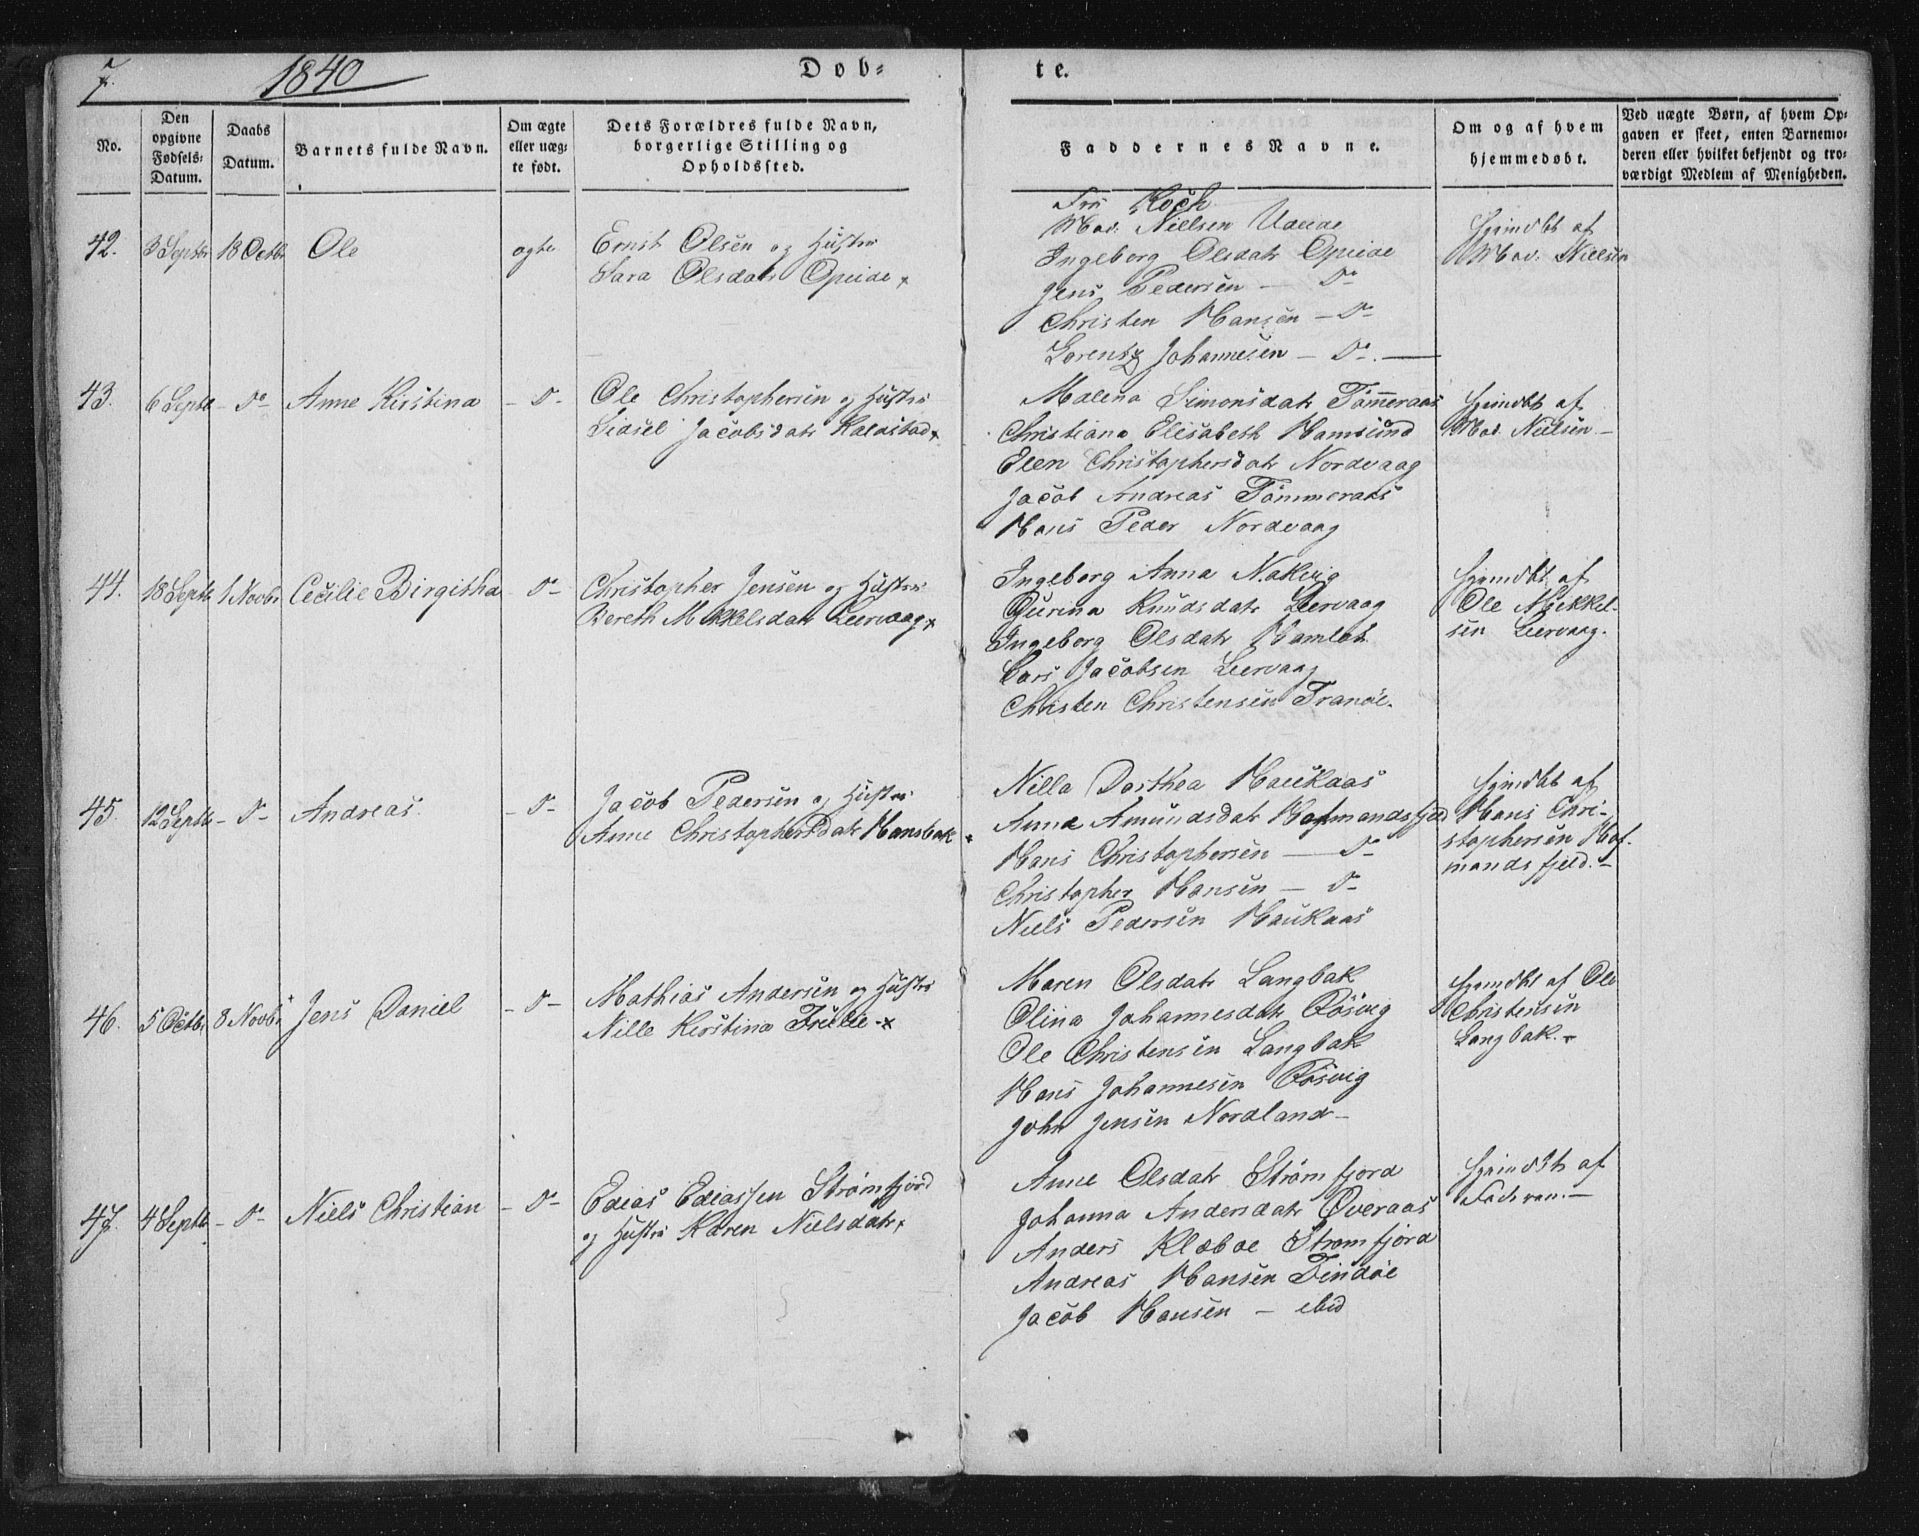 7.
1840
Dob=
te.
No.
Den opgivne Fødsels= Datum.
Daabs Datum.
Barnets fulde Navn.
Om ægte eller uæg= te født.
Dets Forældres fulde Navn, borgerlige Stilling og Opholdssted.
Faddernes Navne.
Om og af hvem hjemmedøbt.
Ved uægte Børn, af hvem Op= gaven er skeet, enten Barnemo= deren eller hvilket bekjendt og tro= værdigt Medlem af Menigheden.
42. 3 Septbr 18 Octbr Ole ægte
Ernst Olsen og Hustru
Sara Olsdatr Opeide
Fru Koch
Mad. Nielsen
Ingeborg Olsdatr Opeide
Jens Pedersen — Do
Christen Hansen — Do
Lorentz Johannesen — Do. —
Hjemdbt af
Mad. Nielsen
43. 6 Septbr - Do Anne Kirstina - D-
Ole Christophersen og Hustru
Sidsel Jacobsdatr Kaldstad
Malena Simonsdatr Tømmeraas
Christiana Elisabeth Hamsund
Elen Christophersdatr Nordvaag
Jacob Andreas Tømmeraas
Hans Peder Nordvaag
Hjemdbt af
Mad. Nielsen —
44. 18 Septbr 1 Novbr Cecilie Birgitha - D-
Christopher Jensen og Hustru
Bereth Mikkelsdatr Leervaag
Ingeborg Anna Nakvig
Gurina Knudsdatr Leervaag
Ingeborg Olsdatr Hamlot
Lars Jacobsen Leervaag
Christen Christensen Tranøe.
Hjemdbt af
Ole Mikkel-
sen Leervaag.
45. 12 Septbr - D- Andreas. - D-
Jacob Pedersen og Hustru
Anne Christophersdatr Hansbak
Nilla Dorthea Haukaas
Anna Amundsdatr Hofmandsfjeld
Hans Christophersen — D-
Christopher Hansen — D-
Niels Pedersen Haukaas
Hjemdbt af
Hans Chri-
stophersen Hof-
mandsfjeld. —
46. 5 Octbr 8 Novbr Jens Daniel - D-
Mathias Andersen og Hustru
Nille Kirstina
Maren Olsdatr Langbak
Olina Johannesdatr Røsvig
Ole Christensen Langbak
Hans Johannesen Røsvig
John Jensen Nordland —
Hjemdbt af Ole
Christensen
Langbak. —
47. 4 Septbr - D- Niels Christian - D-
Edeas Edeassen Strømfjord
og Hustru Karen Nielsdatr
Anne Olsdatr Strømfjord
Johanna Andersdatr Overaas
Anders Klæboe Strømfjord
Andreas Hansen Findøe
Jacob Hansen — ibid
Hjemdbt af
Faderen. —